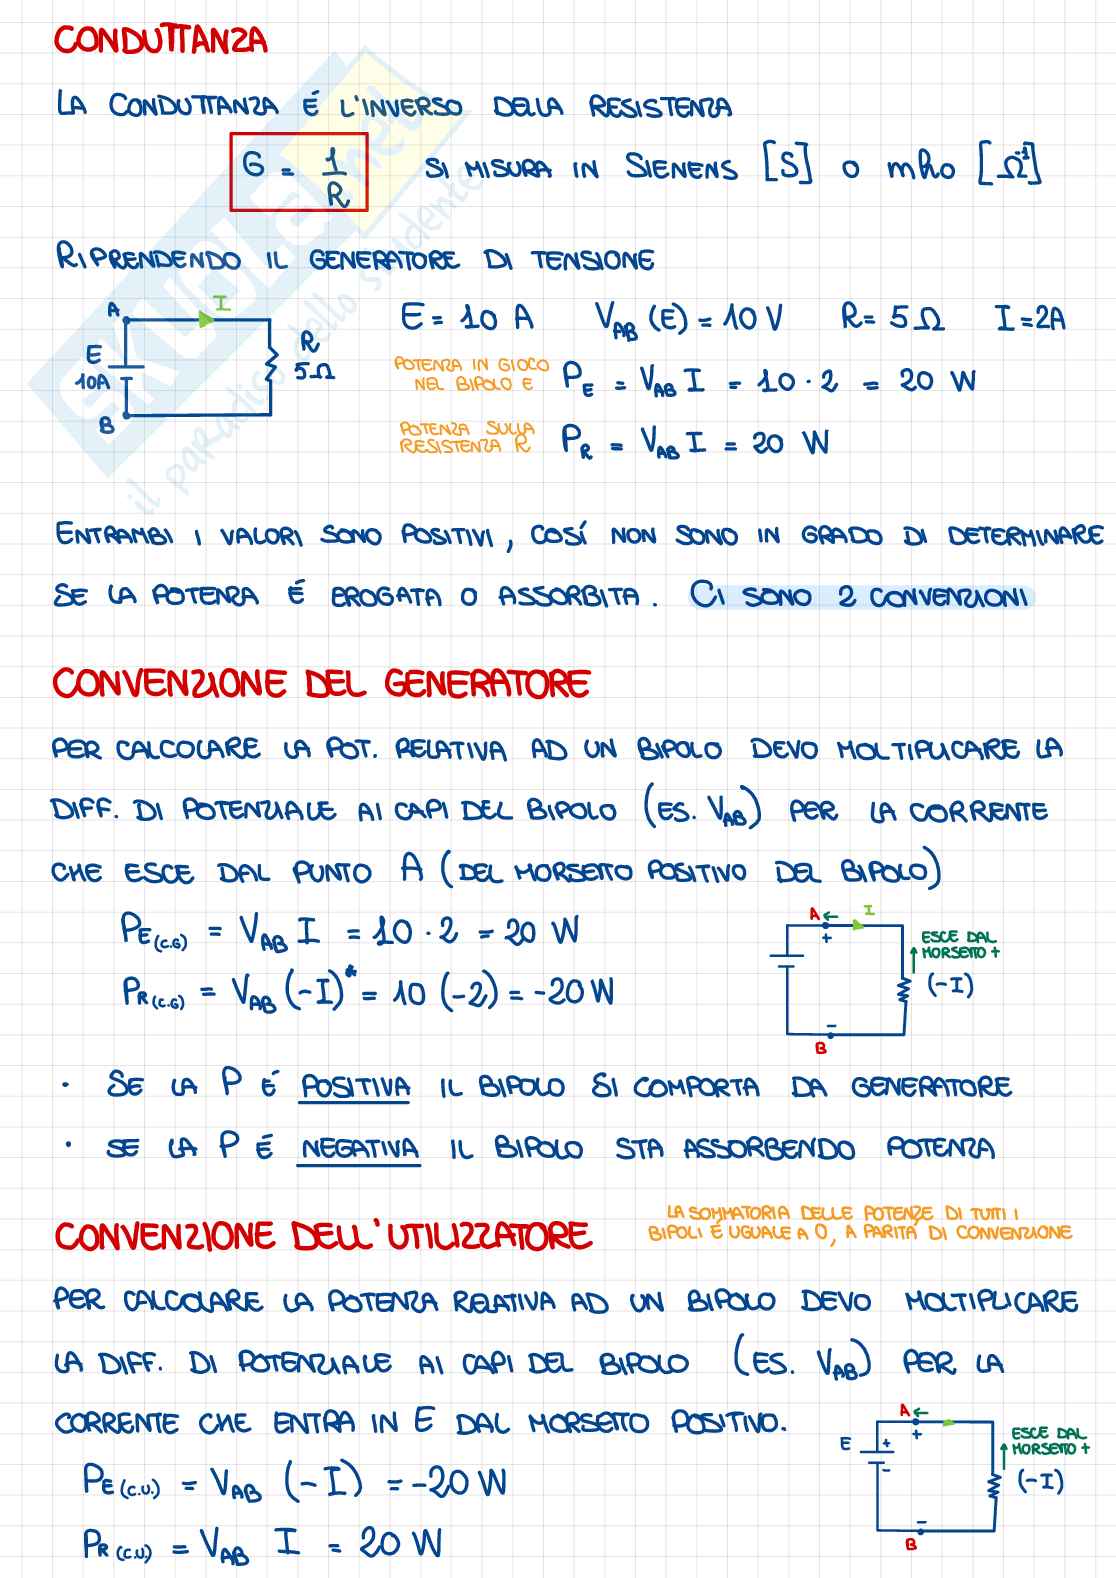 CONDUTTANZA
LA CONDUTTANZA É L'INVERSO DELLA RESISTENZA
G = 1/R SI MISURA IN SIENENS [S] O mho [Ω⁻¹]
RIPRENDENDO IL GENERATORE DI TENSIONE
A I
E 10A
R 5Ω
B
E = 10 A V_AB (E) = 10 V R = 5 Ω I = 2A
POTENZA IN GIOCO
NEL BIPOLO E
P_E = V_AB I = 10 · 2 = 20 W
POTENZA SULLA
RESISTENZA R
P_R = V_AB I = 20 W
ENTRAMBI I VALORI SONO POSITIVI, COSÍ NON SONO IN GRADO DI DETERMINARE
SE LA POTENZA É EROGATA O ASSORBITA. CI SONO 2 CONVENZIONI
CONVENZIONE DEL GENERATORE
PER CALCOLARE LA POT. RELATIVA AD UN BIPOLO DEVO MOLTIPLICARE LA
DIFF. DI POTENZIALE AI CAPI DEL BIPOLO (ES. V_AB) PER LA CORRENTE
CHE ESCE DAL PUNTO A (DEL MORSETTO POSITIVO DEL BIPOLO)
P_E(C.G) = V_AB I = 10 · 2 = 20 W
P_R(C.G) = V_AB (-I)* = 10 (-2) = -20 W
A ← I
+
ESCE DAL
MORSETTO +
(-I)
-
B
· SE LA P É POSITIVA IL BIPOLO SI COMPORTA DA GENERATORE
· SE LA P É NEGATIVA IL BIPOLO STA ASSORBENDO POTENZA
CONVENZIONE DELL'UTILIZZATORE
LA SOMMATORIA DELLE POTENZE DI TUTTI I
BIPOLI É UGUALE A 0, A PARITÁ DI CONVENZIONE
PER CALCOLARE LA POTENZA RELATIVA AD UN BIPOLO DEVO MOLTIPLICARE
LA DIFF. DI POTENZIALE AI CAPI DEL BIPOLO (ES. V_AB) PER LA
CORRENTE CHE ENTRA IN E DAL MORSETTO POSITIVO.
P_E(C.U.) = V_AB (-I) = -20 W
P_R(C.U) = V_AB I = 20 W
A ←
+
E + -
ESCE DAL
MORSETTO +
(-I)
-
B
SKUOLA.net
il paradiso dello studente